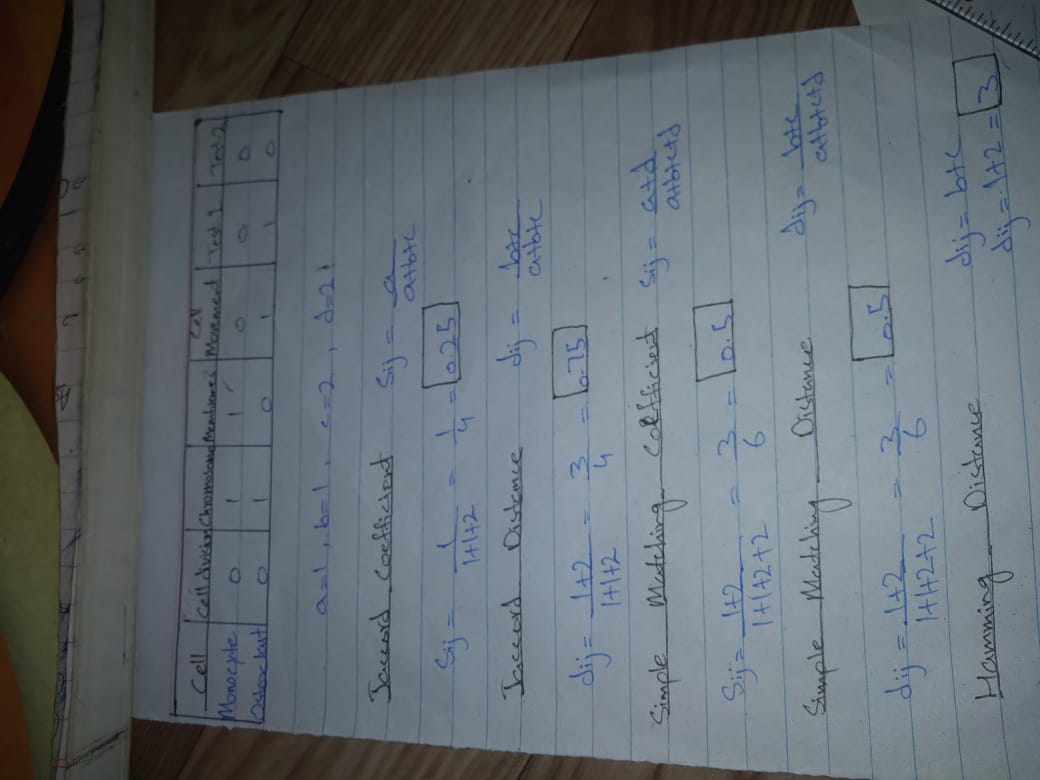 Cell Cell division Chromosome Membranes Cell Movement Test 1 Test 2
Monocyte 0 1 1 0 0 0
Osteoclast 0 1 0 1 1 0
a=1, b=1, c=2, d=2
Jaccord coefficient Sij = a/a+b+c
Sij = 1/1+1+2 = 1/4 = 0.25
Jaccord Distance dij = b+c/a+b+c
dij = 1+2/1+1+2 = 3/4 = 0.75
Simple Matching coefficient Sij = a+d/a+b+c+d
Sij = 1+2/1+1+2+2 = 3/6 = 0.5
Simple Matching Distance dij = b+c/a+b+c+d
dij = 1+2/1+1+2+2 = 3/6 = 0.5
Hamming Distance dij = b+c
dij = 1+2 = 3